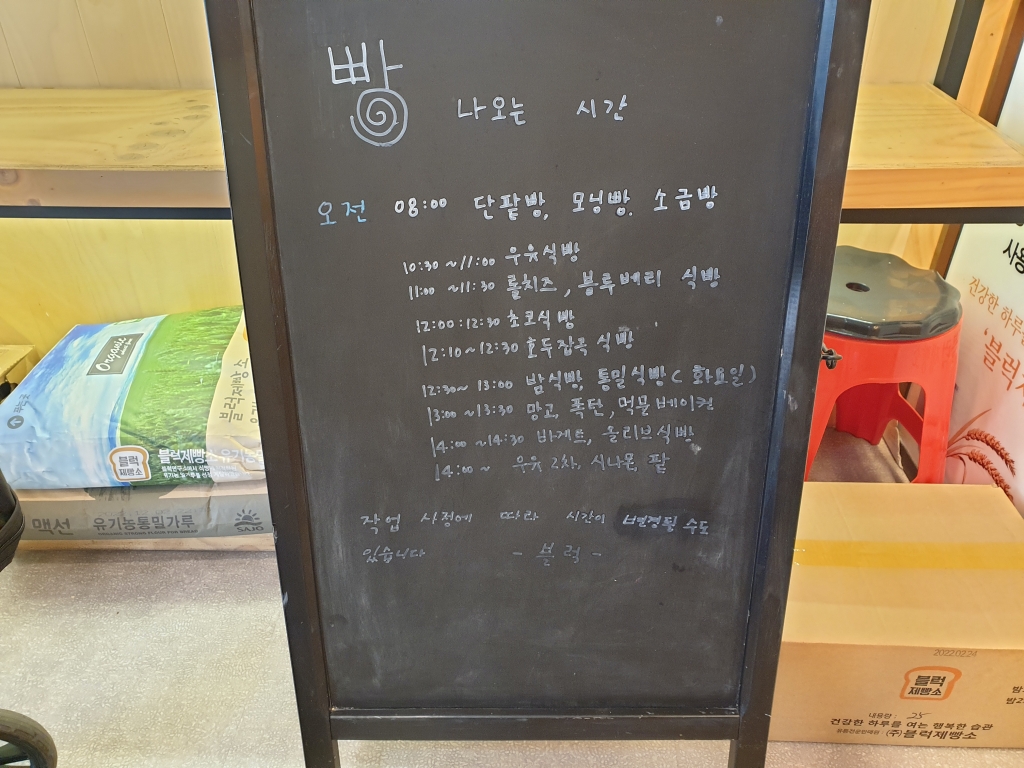 빵 나오는 시간
오전 08:00 단팥빵, 모닝빵, 소금빵
10:30 ~11:00 우유식빵
11:00 ~11:30 롤치즈, 블루베리 식빵
12:00:12:30 초코식빵
12:10~12:30 호두잡곡 식빵
12:30~ 13:00 밤식빵, 통밀식빵( 화요일)
13:00 ~13:30 망고, 폭탄, 먹물베이컨
14:00 ~14:30 바게트, 올리브식빵
14:00~ 우유 2차, 시나몬, 팥
작업 사정에 따라 시간이 변경될 수도
있습니다 - 블럭 -
Organic
블럭제빵소
블럭
제빵소
블럭제빵소
맥선
유기농통밀가루
SAJO
건강한 하루
'블럭
2022.02.24
블럭
제빵소
내용량: 25
건강한 하루를 여는 행복한 습관
(주)블럭제빵소